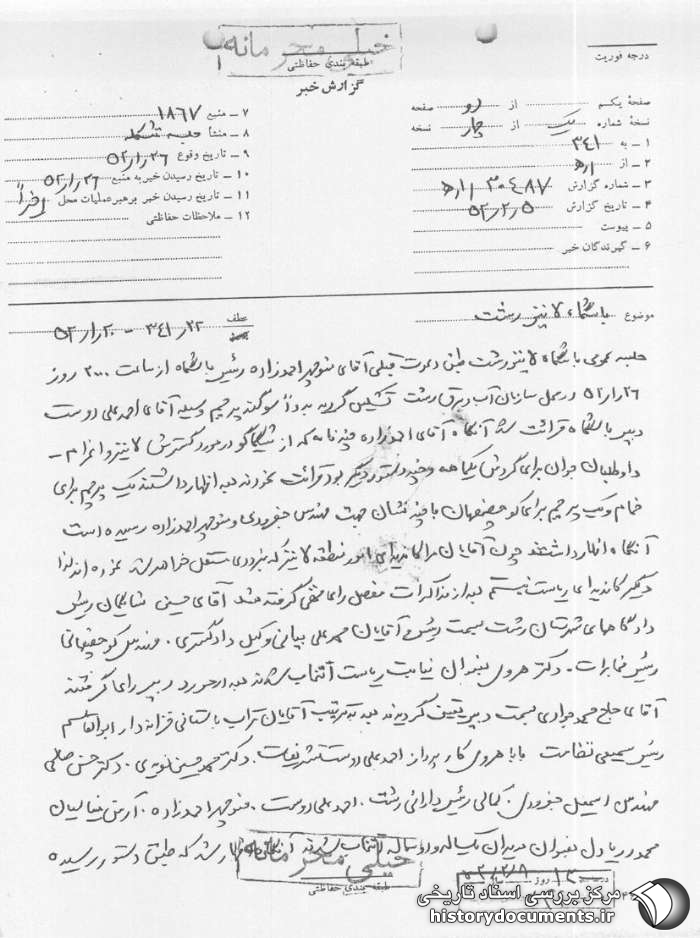 خیلی محرمانه
طبقه بندی حفاظتی
گزارش خبر
درجه فوریت
صفحهٔ یکم از دو صفحه
نسخهٔ شماره یک از چهار نسخه
۱ – به ۳۴۱
۲ – از ۱ره
۳ – شماره گزارش ۳۰۴۸۷ ر۱ره
۴ – تاریخ گزارش ۵۲٫۲٫۵
۵ – پیوست
۶ – گیرندگان خبر
۷ – منبع ۱۸۶۷
۸ – منشأ جلسه متشکله
۹ – تاریخ وقوع ۲۶ر۱ر۵۲
۱۰ – تاریخ رسیدن خبر به منبع ۲۶ر۱ر۵۲
۱۱ – تاریخ رسیدن خبر برهبر عملیات محل
۱۲ – ملاحظات حفاظتی
موضوع باشگاه لاینز رشت
عطف ۲۲ر۳۴۱ – ۲۰ر۱ر۵۲
جلسه عمومی باشگاه لاینز رشت طبق دعوت قبلی آقای منوچهر احمدزاده رئیس باشگاه از ساعت ۲۰۰۰ روز
۲۶ر۱ر۵۲ در محل سازمان آب و برق رشت تشکیل گردید بدواً سوگند پرچم وسیله آقای احمدعلی دوست
دبیر باشگاه قرائت شد آنگاه آقای احمدزاده چند نامه که از شیکاگو در مورد گسترش لاینز و اعزام –
داوطلبان جوان برای گردش یکماهه و چند دستور دیگر بود قرائت نمودند بعد اظهار داشتند یک پرچم برای
خمام و یک پرچم برای کوچصفهان با چند نشان جهت مهندس جفرودی و منوچهر احمدزاده رسیده است
آنگاه اظهار داشتند چون آقایان مرا کاندیدای امور منطقه لاینز که بزودی مستقل خواهد شد نموده اند لذا
دیگر کاندیدای ریاست نیستم بعد از مذاکرات مفصل رای مخفی گرفته شد آقای حسین شایگان رئیس
دادگاههای شهرستان رشت بسمت رئیس و آقایان محمدعلی بیانی وکیل دادگستری . مهندس کوچصفهانی
رئیس مخابرات . دکتر هروی بعنوان نیابت ریاست انتخاب شدند بعد در مورد دبیر رای گرفتند
آقای حاج محمد جوادی بسمت دبیر تعیین گردیدند بعد به ترتیب آقایان تراب باستانی خزانه دار ابوالقاسم
رئیس سمیعی نظامت بابا هروی کارپرداز احمدعلی دوست تشریفات . دکتر محمدحسین نویدی . دکتر حسن صالحی
مهندس اسمعیل جفرودی . کمالی رئیس دارائی رشت . احمدعلی دوست . منوچهر احمدزاده . آرش
محمود دریادل بعنوان مدیران یکساله و دو ساله انتخاب شدند آنگاه اظهار شد که طبق دستور رسیده
خیلی محرمانه
طبقه بندی حفاظتی
روز ۵۲/۲/۸
مرکز بررسی اسناد تاریخی
historydocuments.ir